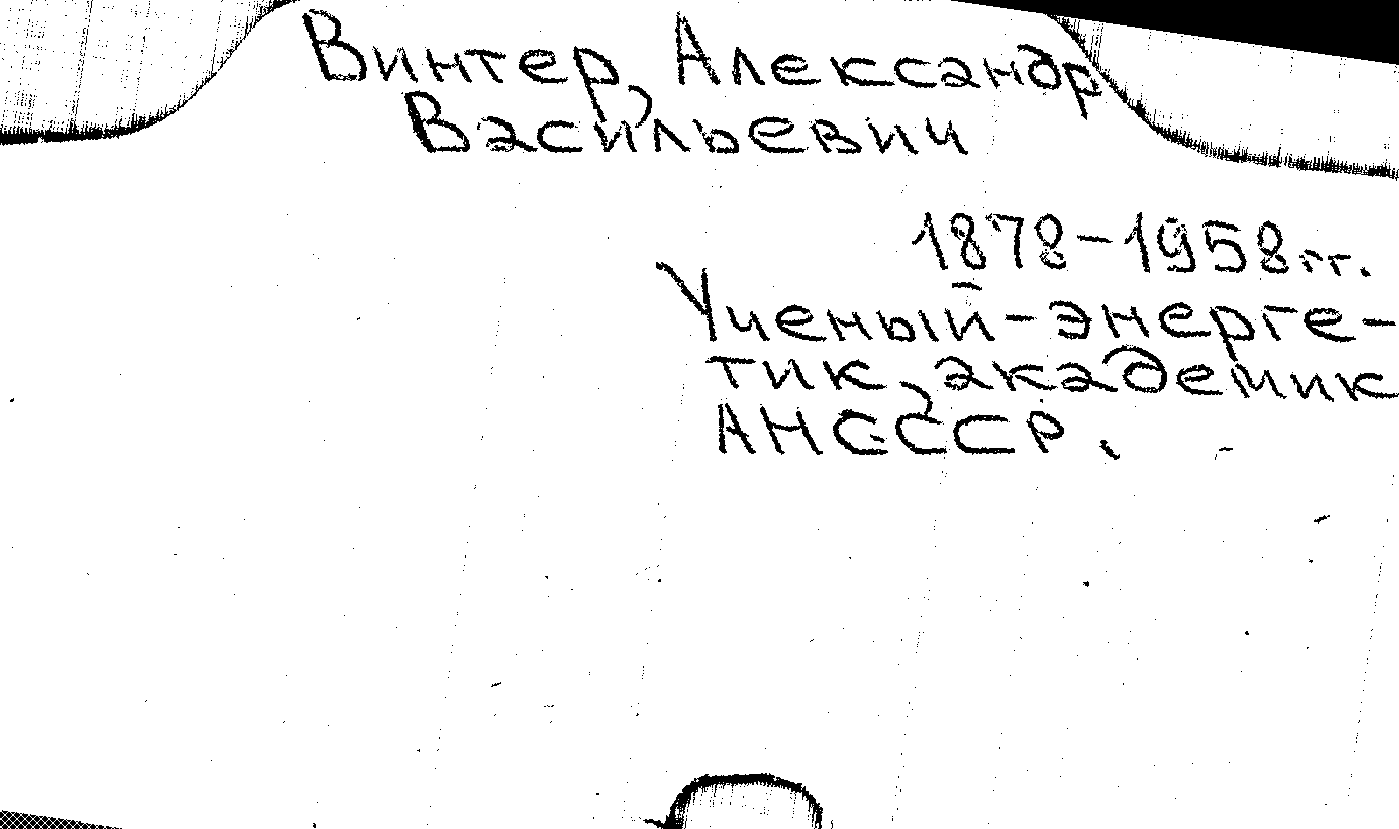 Винтер, Александр
Васильевич
1878-1958гг.
Ученый-энерге-
тик, академик
АНСССР.